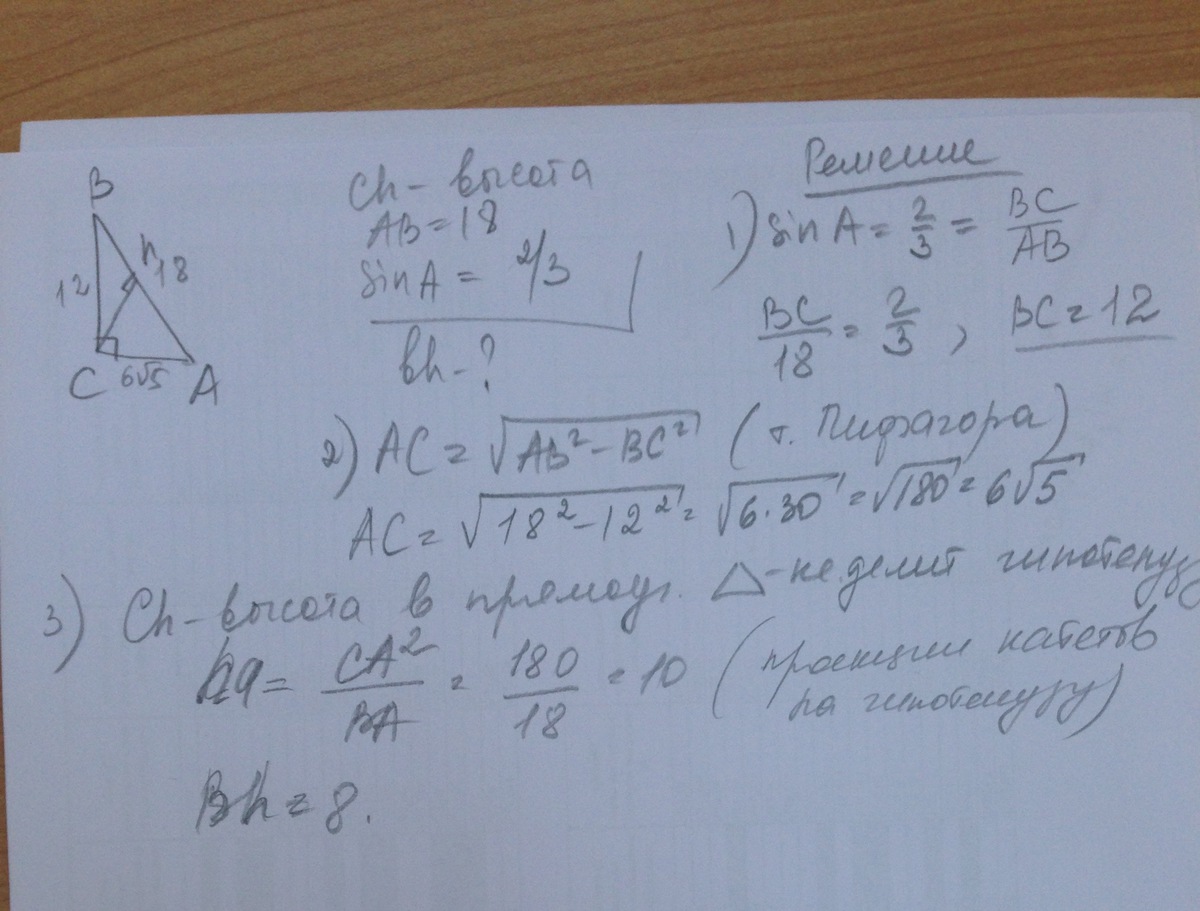 B
h
12
18
C
6√5
A
Ch - высота
AB = 18
sin A = 2/3
Bh - ?
Решение
1) sin A = 2/3 = BC/AB
BC/18 = 2/3 , BC = 12
2) AC = √(AB² - BC²) (т. Пифагора)
AC = √(18² - 12²) = √(6·30) = √180 = 6√5
3) Ch - высота в прямоуг. △ - делит гипотенузу
hA = CA²/BA = 180/18 = 10 (проекции катетов
на гипотенузу)
Bh = 8.